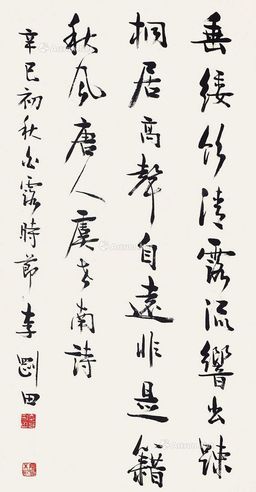 垂緌饮清露流響出踈
桐居高聲自遠非是籍
秋风唐人虞世南詩
辛巳初秋白露時節李剛田